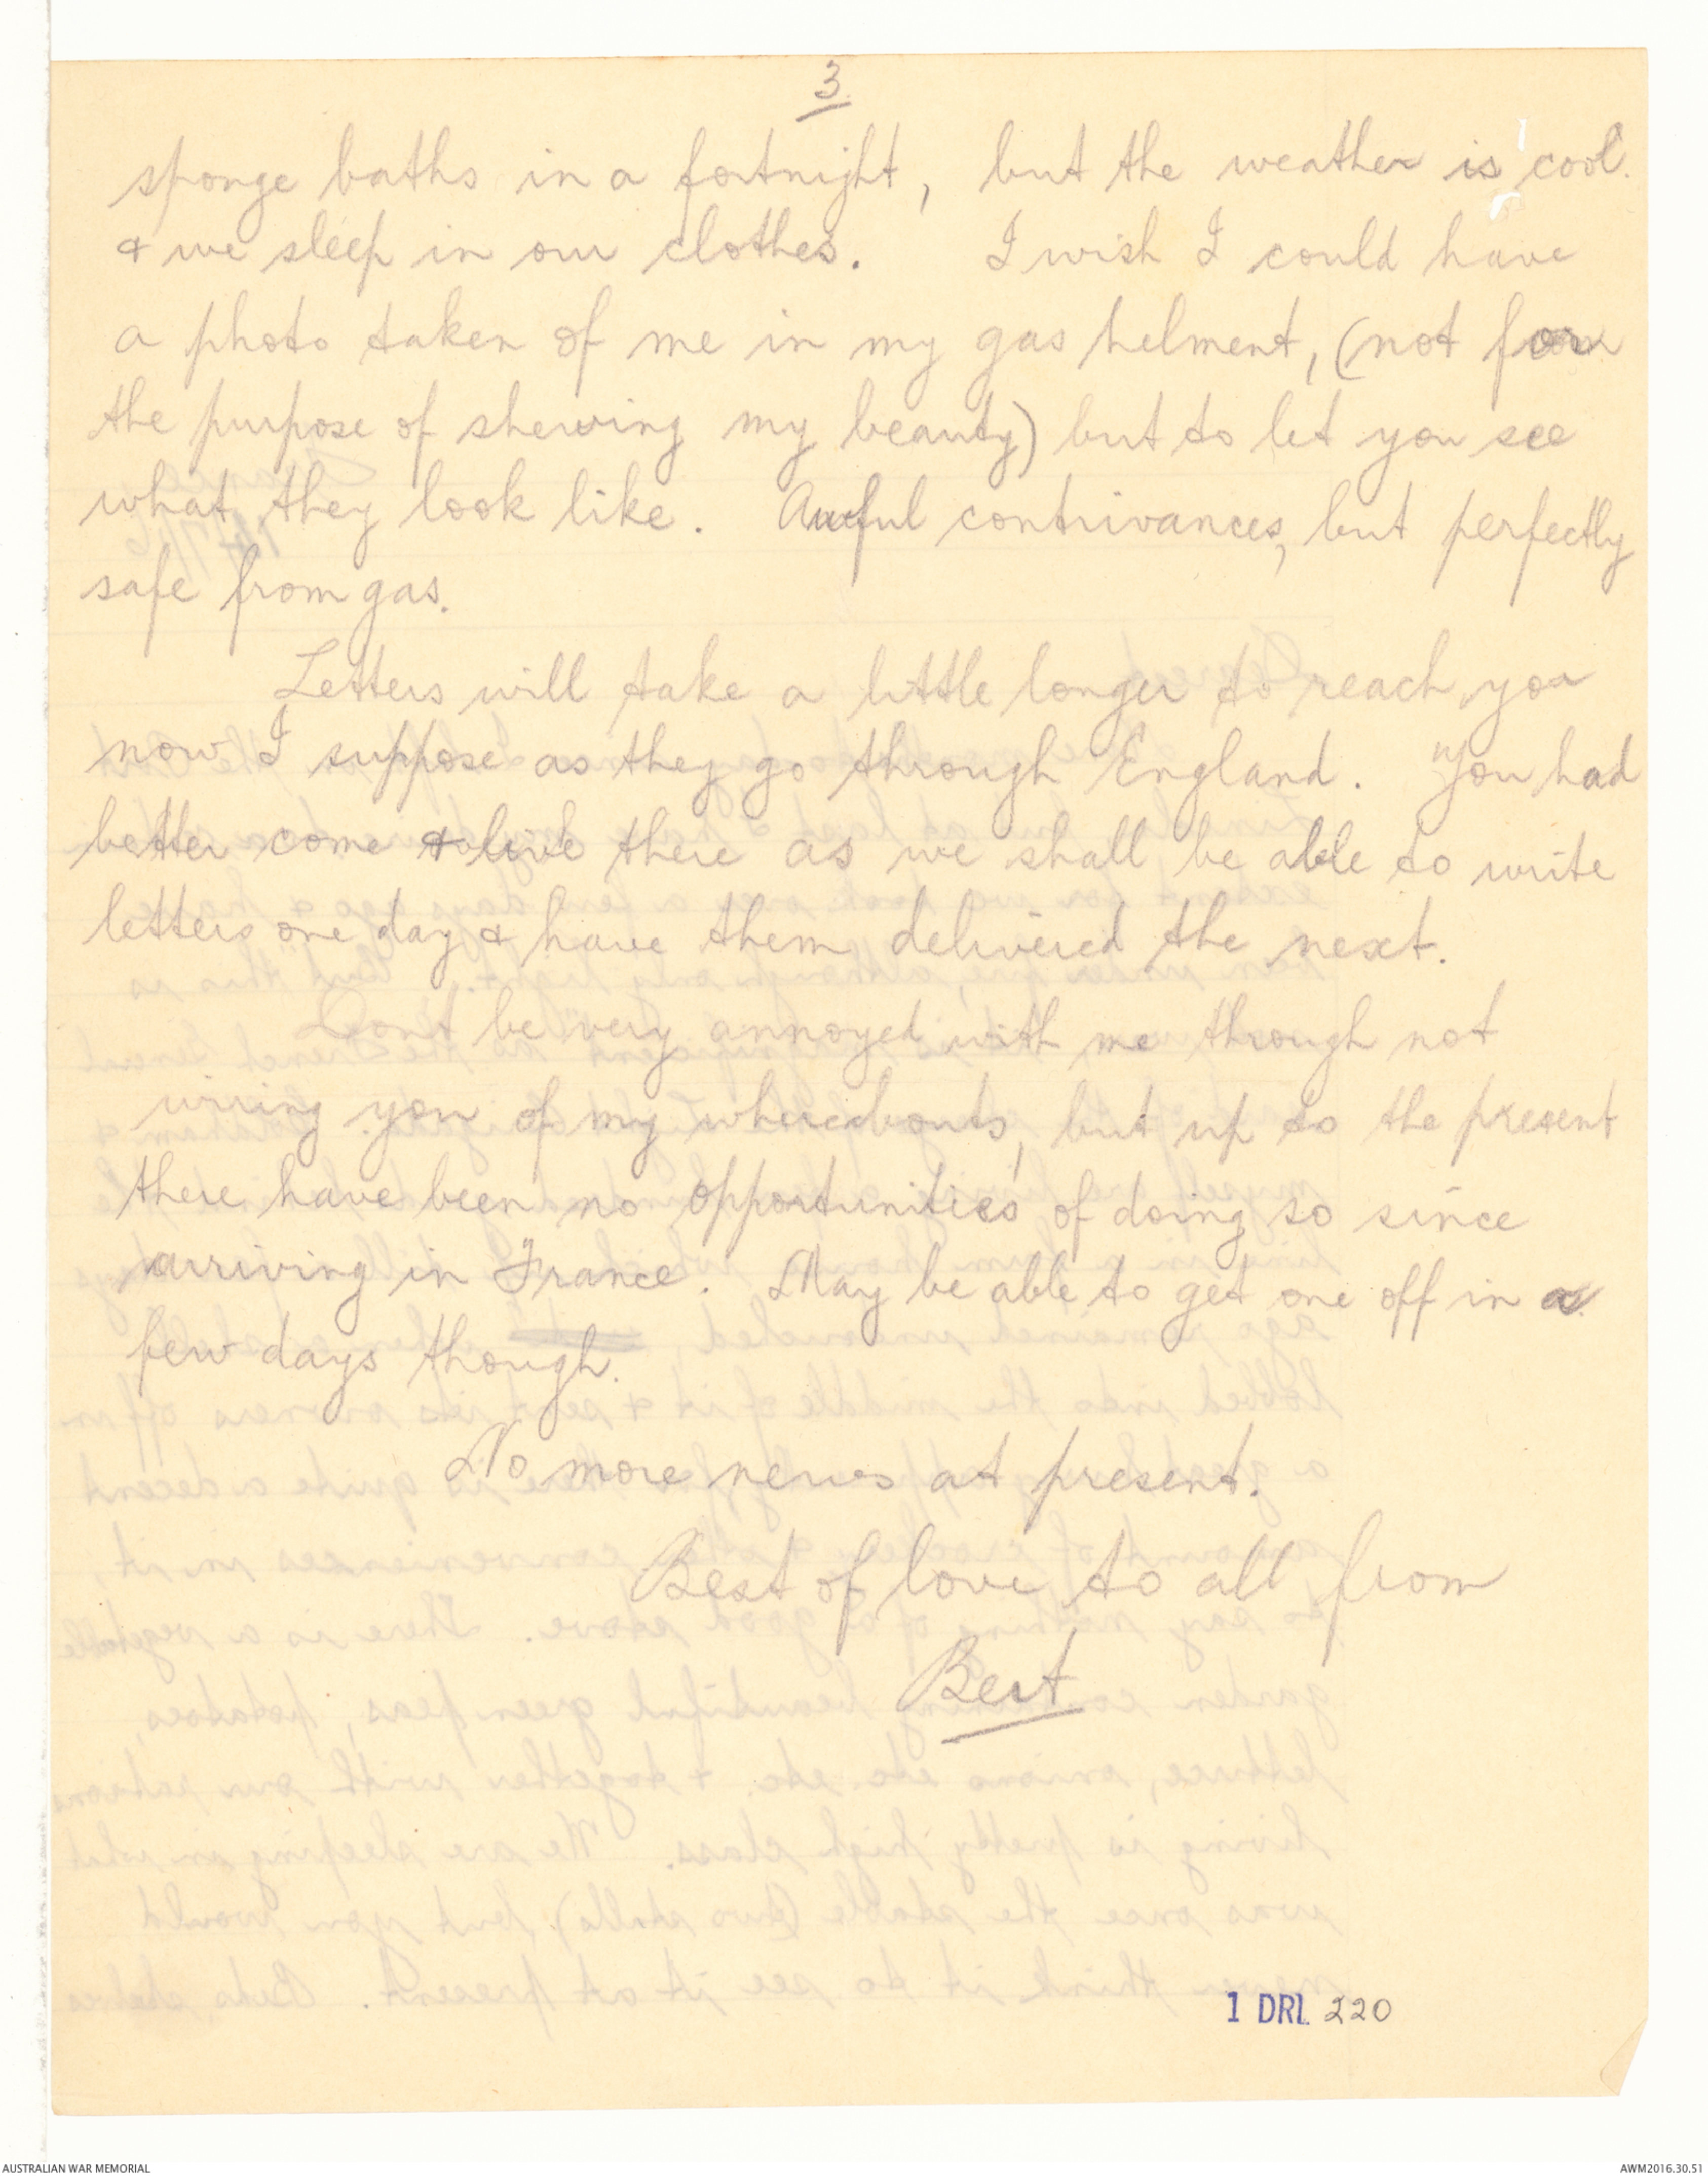 3.
sponge baths in a fortnight, but the weather is cool.
& we sleep in our clothes. I wish I could have
a photo taken of me in my gas helment, (not for
the purpose of shewing my beauty) but to let you see
what they look like. Awful contrivances, but perfectly
safe from gas.
Letters will take a little longer to reach you
now I suppose as they go through England. You had
better come & live there as we shall be able to write
letters one day & have them delivered the next.
Dont be very annoyed with me through not
wiring you of my whereabouts, but up to the present
there have been no opportunities of doing so since
arriving in France. May be able to get one off in a
few days though.
No more news at present.
Best of love to all from
Bert
1 DRL 220
AUSTRALIAN WAR MEMORIAL
AWM2016.30.51